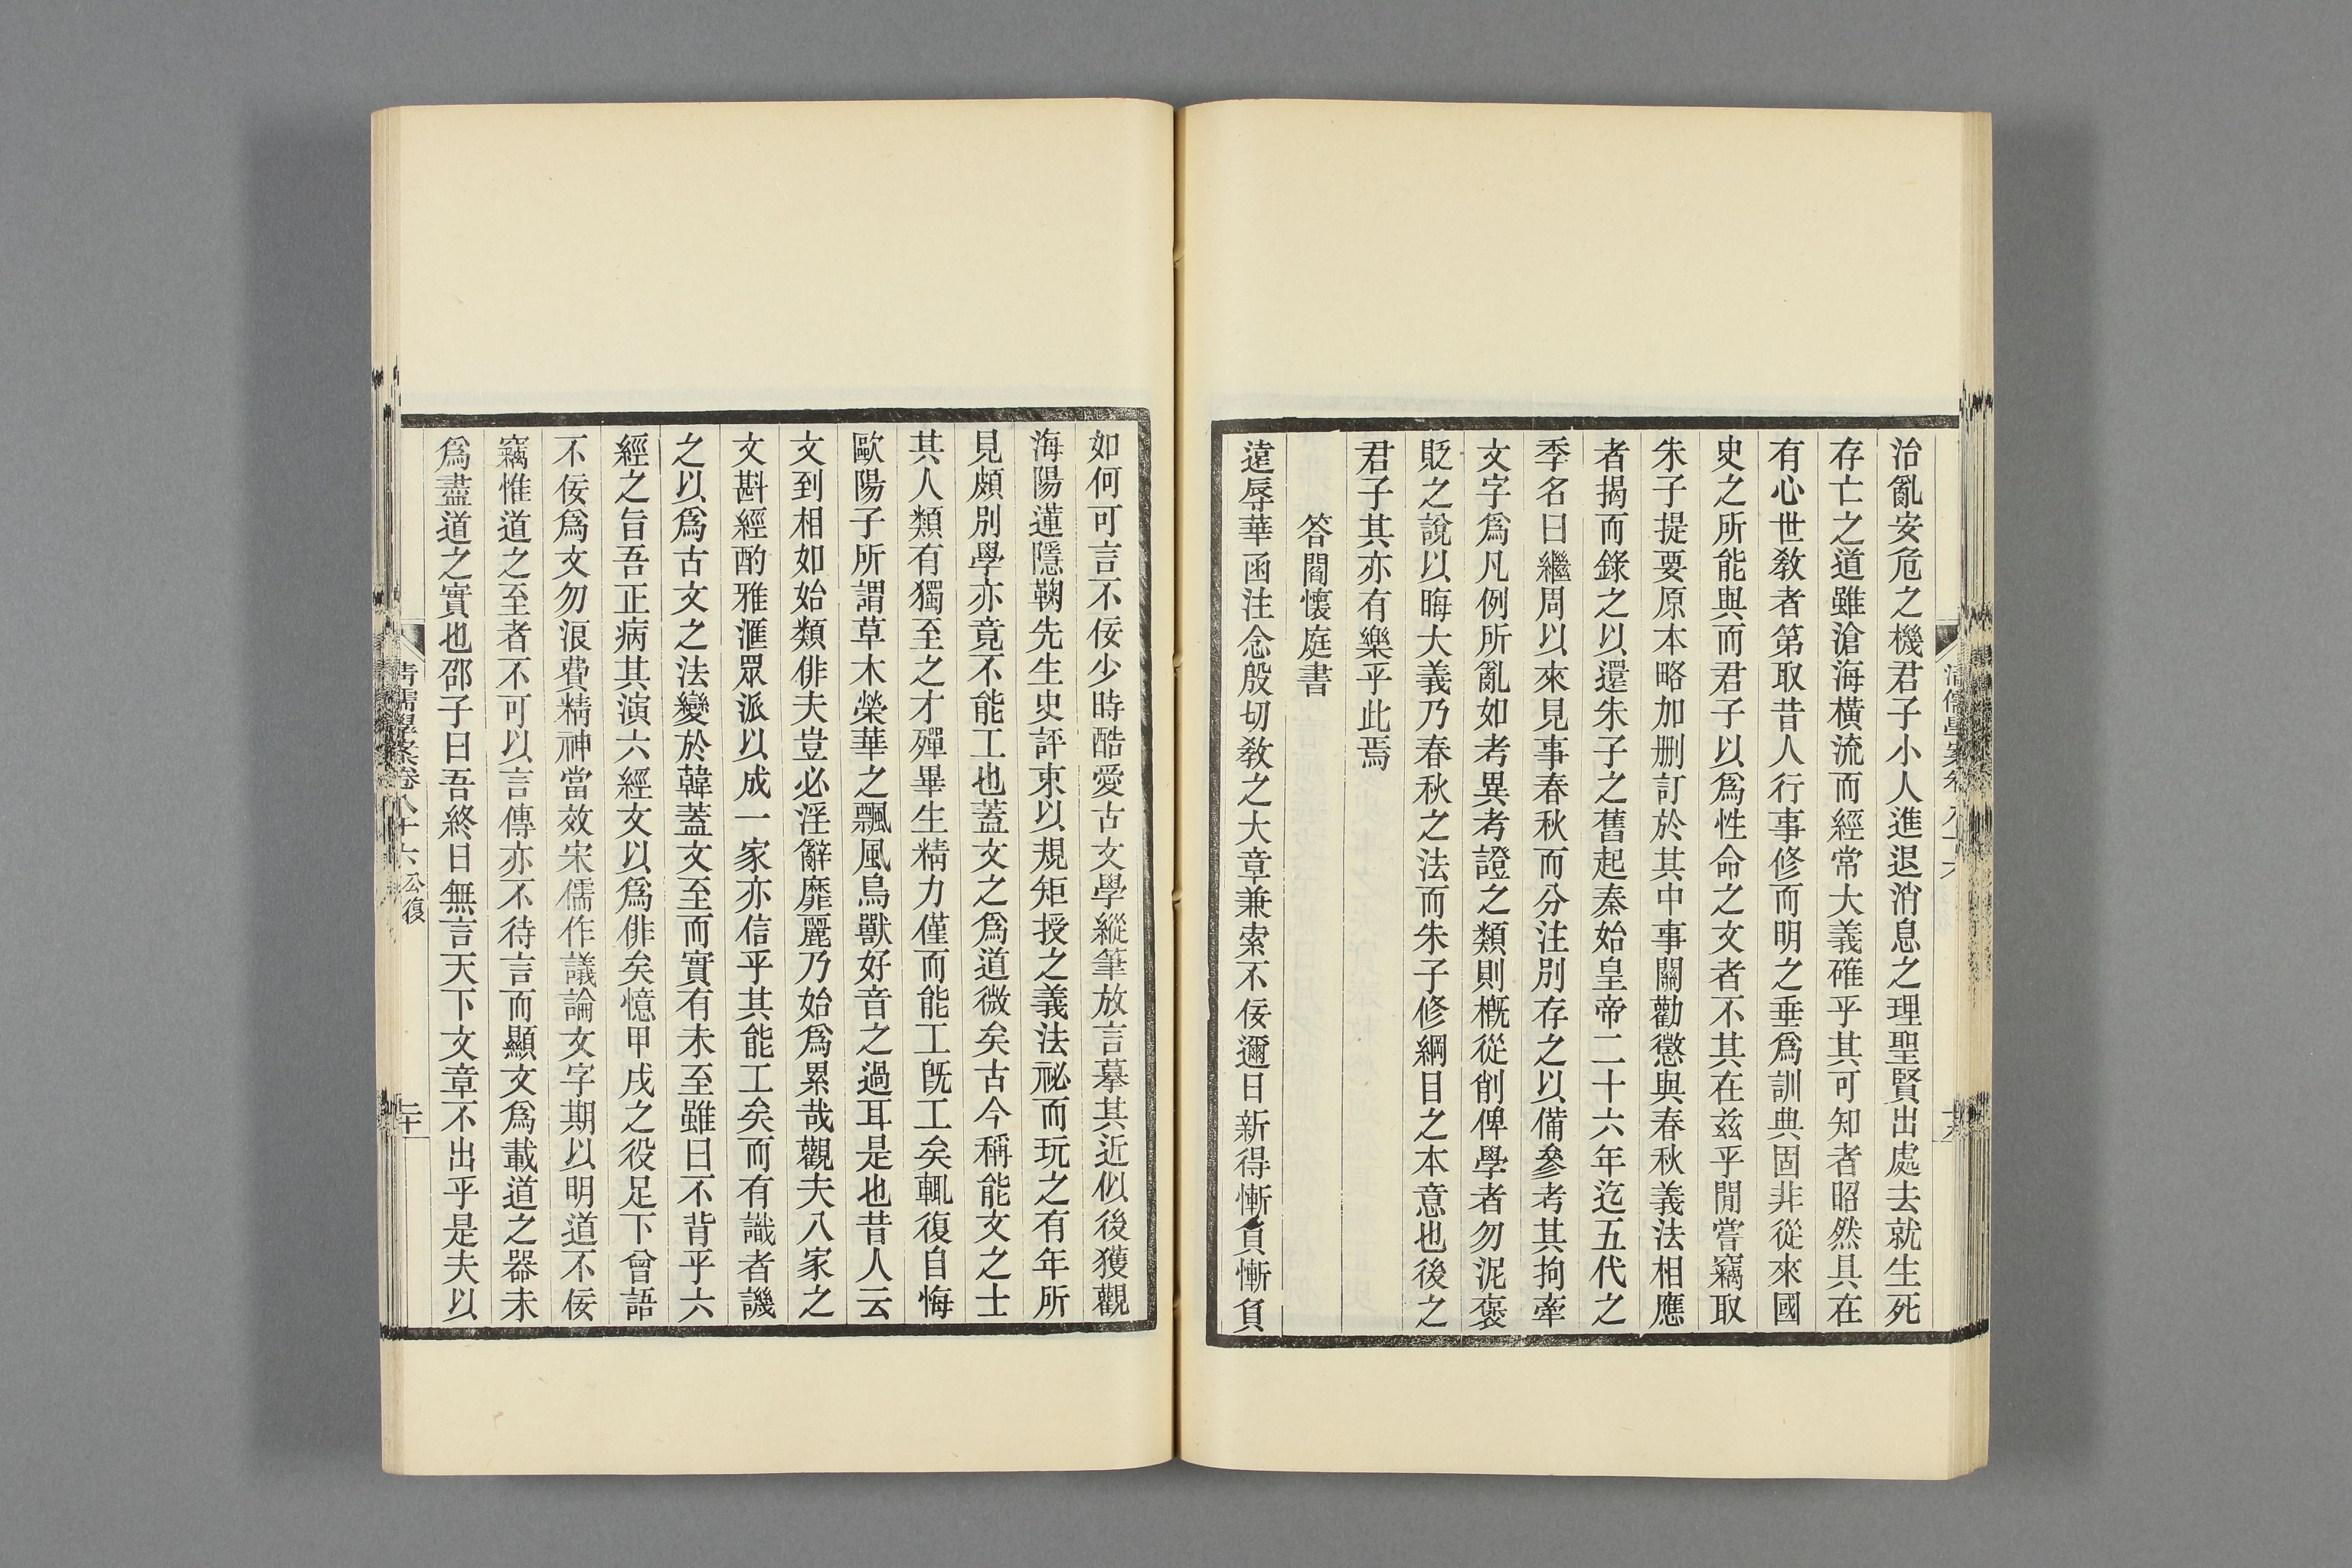 治亂安危之機君子小人進退消息之理聖賢出處去就生死
存亡之道雖滄海橫流而經常大義確乎其可知者昭然具在
有心世敎者第取昔人行事修而明之垂爲訓典固非從來國
史之所能與而君子以爲性命之文者不其在茲乎閒嘗竊取
朱子提要原本略加刪訂於其中事關勸懲與春秋義法相應
者揭而錄之以還朱子之舊起秦始皇帝二十六年迄五代之
季名曰繼周以來見事春秋而分注別存之以備參考其拘牽
文字爲凡例所亂如考異考證之類則概從削俾學者勿泥褒
貶之說以晦大義乃春秋之法而朱子修綱目之本意也後之
君子其亦有樂乎此焉
答閻懷庭書
遠辱華函注念殷切敎之大章兼索不佞邇日新得慚負慚負
如何可言不佞少時酷愛古文學縱筆放言摹其近似後獲觀
海陽蓮隱鞠先生史評束以規矩授之義法祕而玩之有年所
見頗別學亦竟不能工也蓋文之爲道微矣古今稱能文之士
其人類有獨至之才殫畢生精力僅而能工旣工矣輒復自悔
歐陽子所謂草木榮華之飄風鳥獸好音之過耳是也昔人云
文到相如始類俳夫豈必淫辭靡麗乃始爲累哉觀夫八家之
文斟經酌雅滙眾派以成一家亦信乎其能工矣而有識者譏
之以爲古文之法變於韓蓋文至而實有未至雖曰不背乎六
經之旨吾正病其演六經文以爲俳矣憶甲戌之役足下曾語
不佞爲文勿浪費精神當效宋儒作議論文字期以明道不佞
竊惟道之至者不可以言傳亦不待言而顯文爲載道之器未
爲盡道之實也邵子曰吾終日無言天下文章不出乎是夫以
清儒學案卷八十六 公復
二十